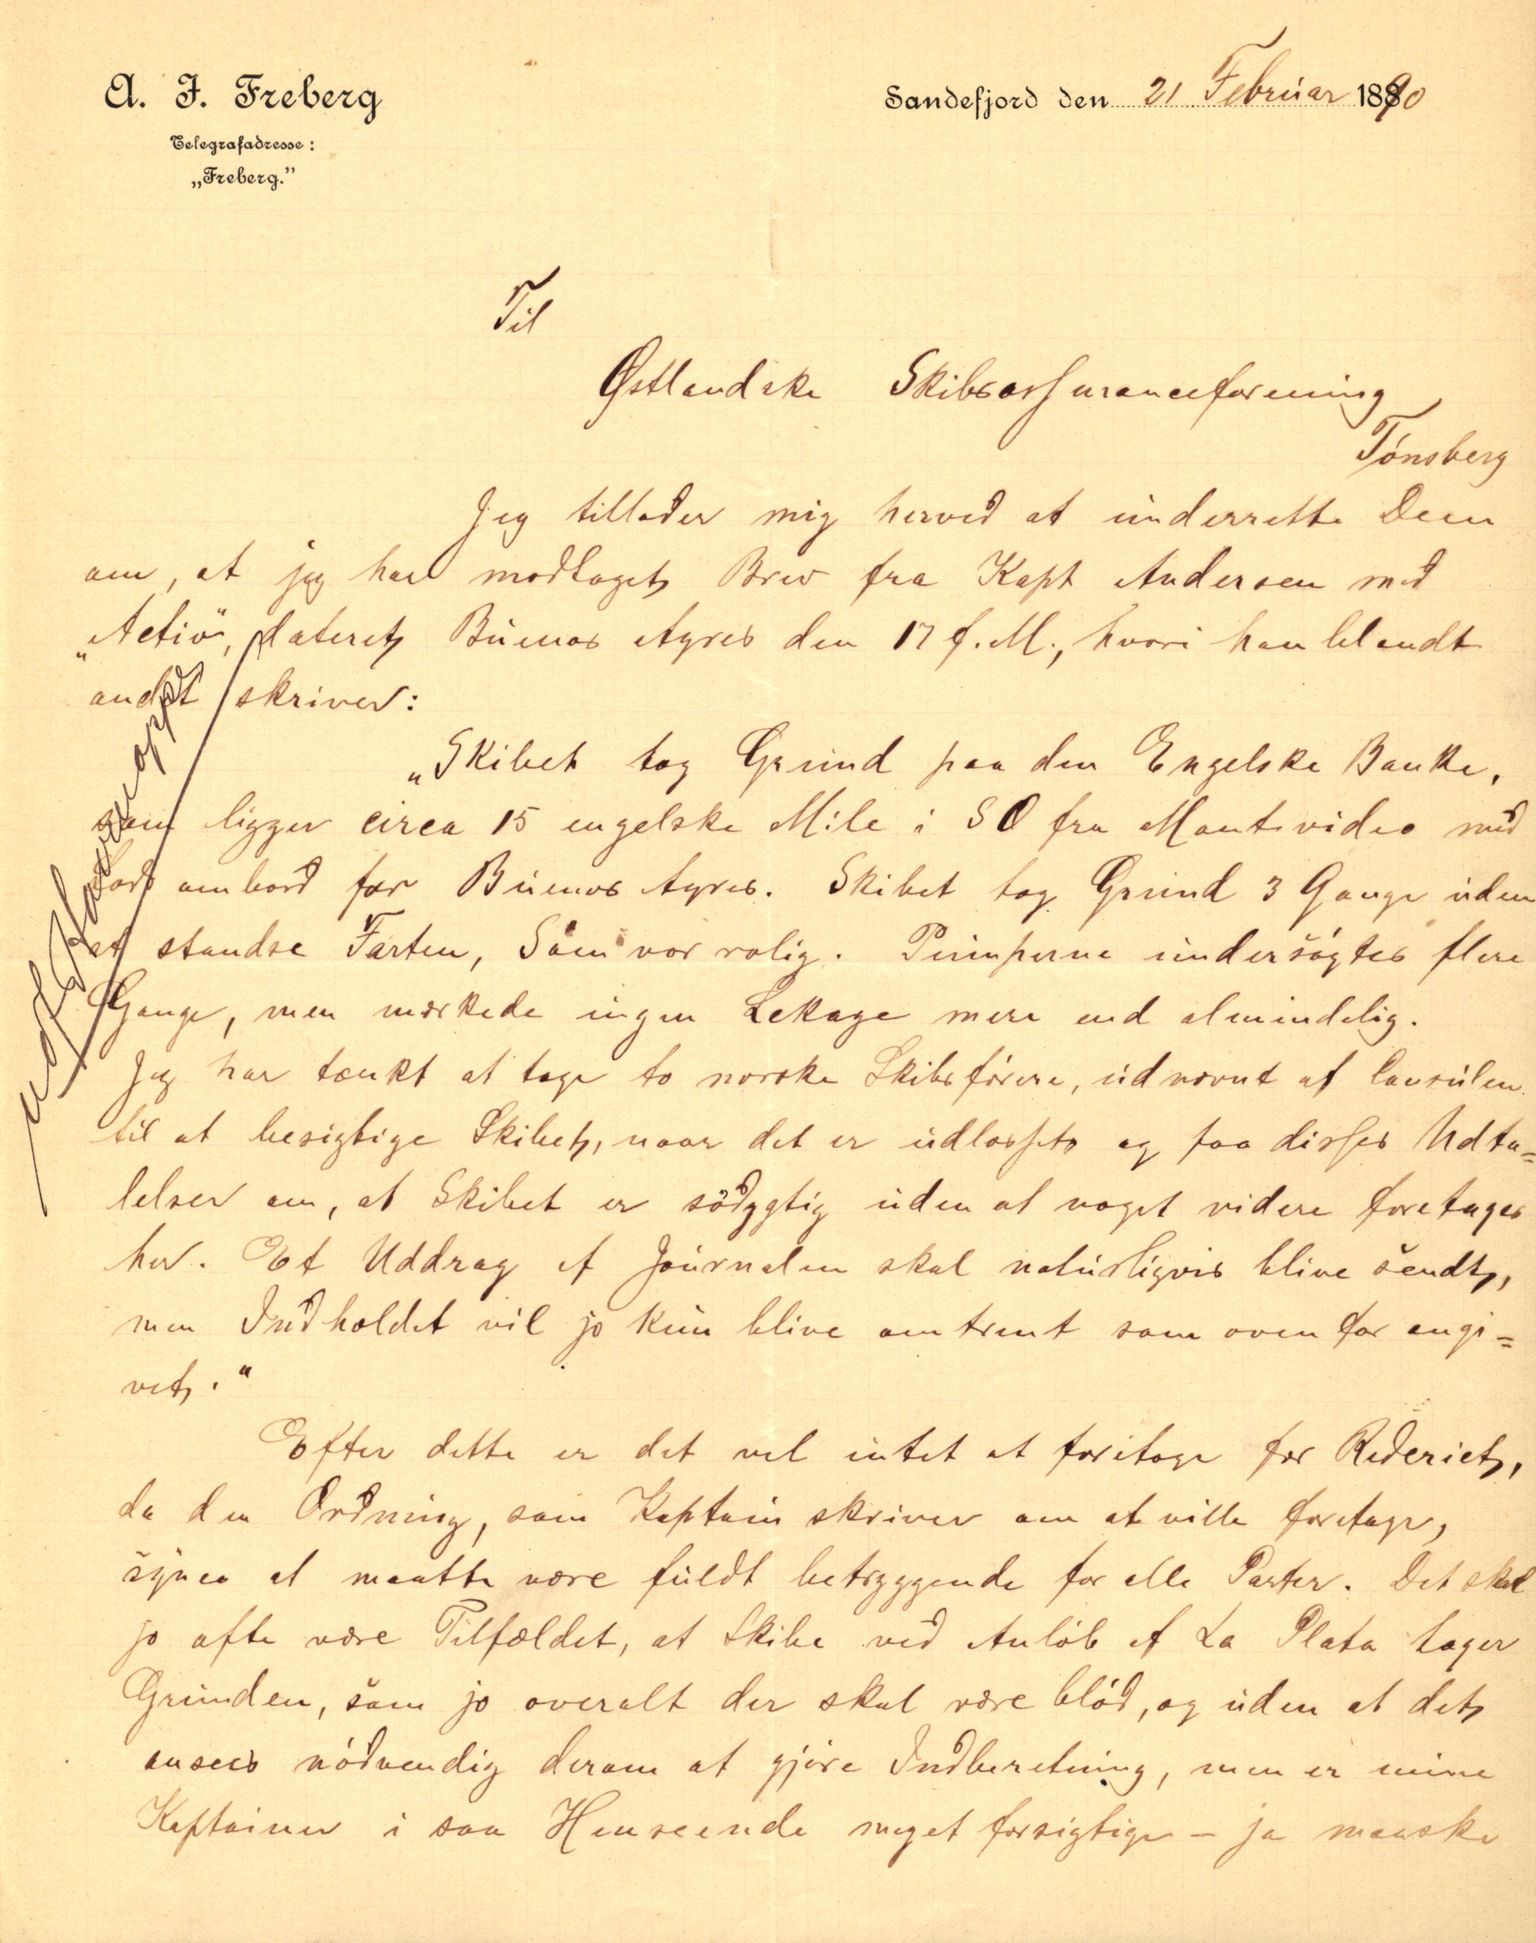 A. J. Freberg
Telegrafadresse:
„Freberg.”
Sandefjord den 21 Februar 1890
Til
Østlandske Skibsassuranceforening
Tönsberg
Jeg tillader mig herved at underrette Dem
om, at jeg har modtaget Brev fra Kapt Andersen med
„Activ“, dateret Buenos Ayres den 17 f. M., hvori han blandt
andet skriver:
„Skibet tog Grund paa den Engelske Banke,
som ligger circa 15 engelske Mile i SO fra Montevideo med
Lods ombord for Buenos Ayres. Skibet tog Grund 3 Gange uden
at standse Farten, Söen var rolig. Pumperne undersögtes flere
Gange, men mærkede ingen Lekage mere end almindelig.
Jeg har tænkt at tage to norske Skibsförere, udnævnt af Consulen
til at besigtige Skibet, naar det er udlosset og faa disses Udta=
lelser om, at Skibet er södygtig uden at noget videre foretages
her. Et Uddrag af Journalen skal naturligvis blive sendt,
men Indholdet vil jo kun blive omtrent som ovenfor angi=
vet.“
Efter dette er det vel intet at foretage for Rederiet,
da den Ordning, som Kaptain skriver om at ville foretage,
synes at maatte være fuldt betryggende for alle Parter. Det skal
jo ofte være Tilfældet, at Skibe ved Anlöb af La Plata tager
Grunden, som jo overalt der skal være blöd, og uden at det
ansees nödvendig derom at gjöre Indberetning, men er mine
Kaptainer i saa Henseende meget forsigtige – ja maaske